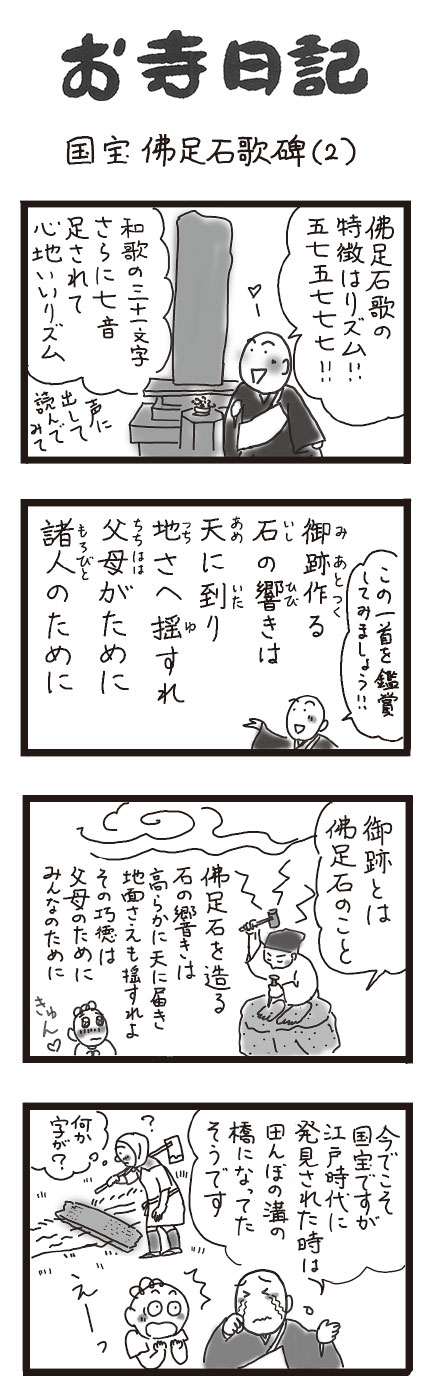 お寺日記
国宝 佛足石歌碑(2)
佛足石歌の
特徴はリズム!!
五七五七七七!!
和歌の三十一文字
さらに七音
足されて
心地いいリズム
声に
出して
読んで
みて
この一首を鑑賞
してみましょう!!
御跡作る
み あとつく
石の響きは
いし ひび
天に到り
あめ いた
地さへ揺すれ
つち ゆ
父母がために
ちちはは
諸人のために
もろびと
御跡とは
佛足石のこと
佛足石を造る
石の響きは
高らかに天に届き
地面さえも揺すれよ
その功徳は
父母のために
みんなのために
きゅん♡
今でこそ
国宝ですが
江戸時代に
発見された時は
田んぼの溝の
橋になってた
そうです
?
何か
字が?
えーっ